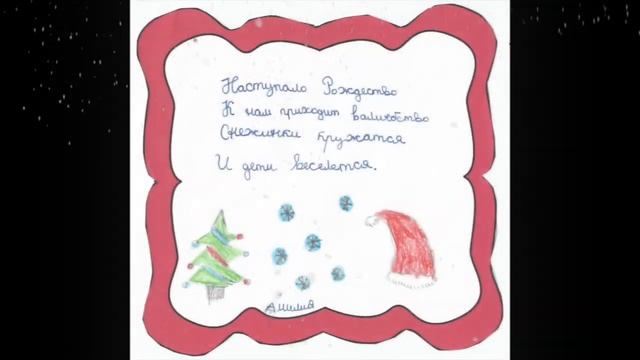 Наступало Рождество
К нам приходит валшебство
Снежинки кружатся
И дети веселется.
Амилия